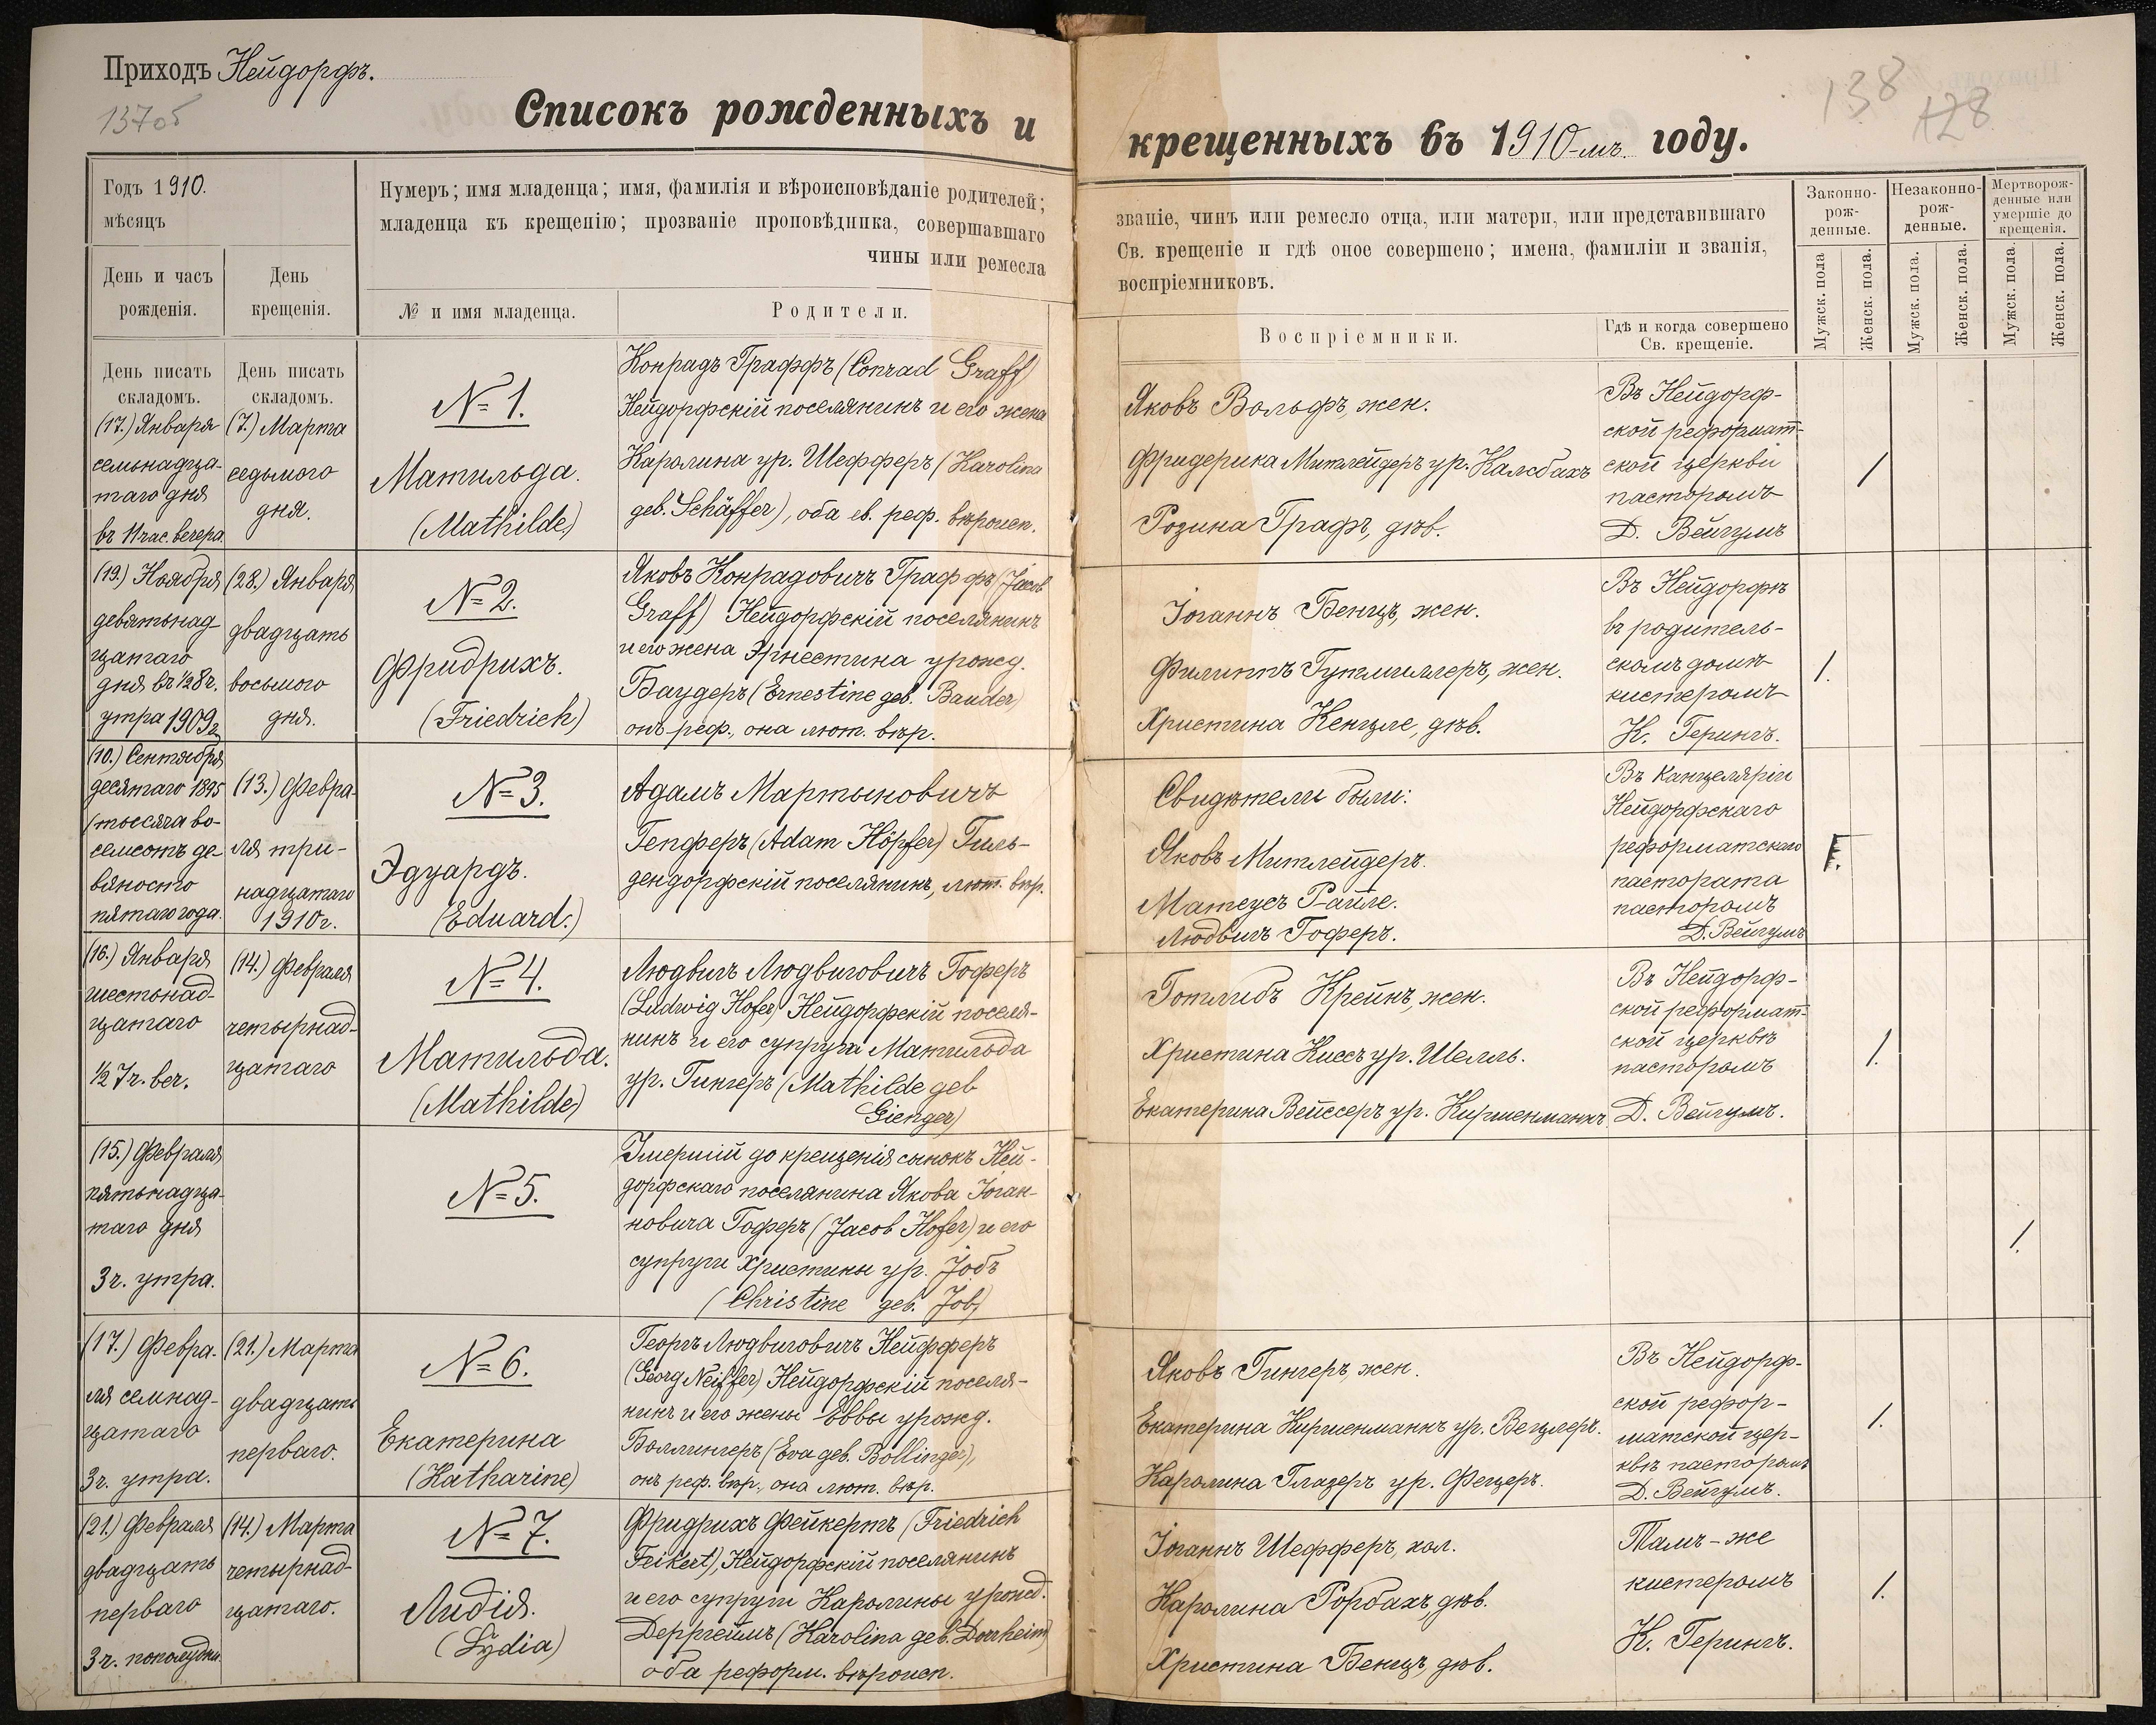 Приходъ Нейдорфъ.
137об
Списокъ рожденныхъ и
крещенныхъ въ 1910-мъ году.
138
128
Годъ 1910.
мѣсяцъ
День и часъ
рожденія.
День
крещенія.
Нумеръ; имя младенца; имя, фамилія и вѣроисповѣданіе родителей;
младенца къ крещенію; прозваніе проповѣдника, совершавшаго
чины или ремесла
№ и имя младенца.
Родители.
званіе, чинъ или ремесло отца, или матери, или представившаго
Св. крещеніе и гдѣ оное совершено; имена, фамиліи и званія,
воспріемниковъ.
Воспріемники.
Гдѣ и когда совершено
Св. крещеніе.
Законно-
рож-
денные.
Незаконно-
рож-
денные.
Мертворож-
денные или
умершіе до
крещенія.
Мужск. пола
Женск. пола.
Мужск. пола.
Женск. пола.
Мужск. пола.
Женск. пола.
День писать
складомъ.
День писать
складомъ.
(17.) Января
семьнадца-
таго дня
въ 11 час. вечера
(7.) Марта
седьмого
дня.
№ 1.
Матильда.
(Mathilde)
Конрадъ Граффъ (Conrad Graff)
Нейдорфскій поселянинъ и его жена
Каролина ур. Шефферъ (Karolina
geb. Schäffer), оба ев. реф. вѣроисп.
Яковъ Вольфъ, жен.
Фридерика Митлейдеръ ур. Калсбахъ
Розина Графъ, дѣв.
Въ Нейдорф-
ской реформат-
ской церкви
пасторомъ
Д. Вейгумъ
/
(19.) Ноября
девятьнад-
цатаго
дня въ 1/2 8 ч.
утра 1909 г.
(28.) Января
двадцать
восьмого
дня.
№ 2.
Фридрихъ.
(Friedrich)
Яковъ Конрадовичъ Граффъ (Jacob
Graff) Нейдорфскій поселянинъ
и его жена Эрнестина урожд.
Баудеръ (Ernestine geb. Bauder)
онъ реф., она лют. вѣр.
Іоганнъ Бенцъ, жен.
Филиппъ Гутмиллеръ, жен.
Христина Кенцле, дѣв.
Въ Нейдорфѣ
въ родитель-
скомъ домѣ
кистеромъ
К. Герингъ.
1.
(10.) Сентября
десятаго 1895
(тысяча во-
семсотъ де-
вяносто
пятаго года.
(13.) Февра-
ля три-
надцатаго
1910 г.
№ 3.
Эдуардъ.
(Eduard.)
Адамъ Мартыновичъ
Гепферъ (Adam Höpfer) Гиль-
дендорфскій поселянинъ, лют. вѣр.
Свидѣтели были:
Яковъ Митлейдеръ.
Матеусъ Райле.
Людвигъ Гоферъ.
Въ Канцеляріи
Нейдорфскаго
реформатскаго
пастората
пасторомъ
Д. Вейгумъ
1.
(16.) Января
шестьнад-
цатаго
1/2 7 ч. веч.
(14.) Февраля
четырнад-
цатаго
№ 4.
Матильда.
(Mathilde)
Людвигъ Людвиговичъ Гоферъ
(Ludwig Hofer) Нейдорфскій поселя-
нинъ и его супруга Матильда
ур. Гингеръ (Mathilde geb
Gienger)
Готлибъ Крейнъ, жен.
Христина Киссъ ур. Шелль.
Екатерина Вейссеръ ур. Киршенманнъ
Въ Нейдорф-
ской реформат-
ской церквѣ
пасторомъ
Д. Вейгумъ.
1.
(15.) Февраля
пятьнадца-
таго дня
3 ч. утра.
№ 5.
Умершій до крещенія сынокъ Ней-
дорфскаго поселянина Якова Іоган-
новича Гоферъ (Jacob Hofer) и его
супруги Христины ур. Іобъ
(Christine geb. Job)
1.
(17.) Февра-
ля семнад-
цатаго
3 ч. утра.
(21.) Марта
двадцать
перваго.
№ 6.
Екатерина
(Katharine)
Георгъ Людвиговичъ Нейфферъ
(Georg Neiffer) Нейдорфскій поселя-
нинъ и его жены Еввы урожд.
Боллингеръ (Eva geb. Bollinger),
онъ реф. вѣр., она лют. вѣр.
Яковъ Гингеръ, жен.
Екатерина Киршенманнъ ур. Вецлеръ.
Каролина Глазеръ ур. Фецеръ.
Въ Нейдорф-
ской рефор-
матской цер-
квѣ пасторомъ
Д. Вейгумъ.
1.
(21.) Февраля
двадцать
перваго
3 ч. пополудни.
(14.) Марта
четырнад-
цатаго.
№ 7.
Лидія.
(Lydia)
Фридрихъ Фейкертъ (Friedrich
Feikert), Нейдорфскій поселянинъ
и его супруги Каролины урожд.
Дерргеймъ (Karolina geb. Dorrheim)
оба реформ. вѣроисп.
Іоганнъ Шефферъ, хол.
Каролина Рорбахъ, дѣв.
Христина Бенцъ, дѣв.
Тамъ-же
кистеромъ
К. Герингъ.
1.